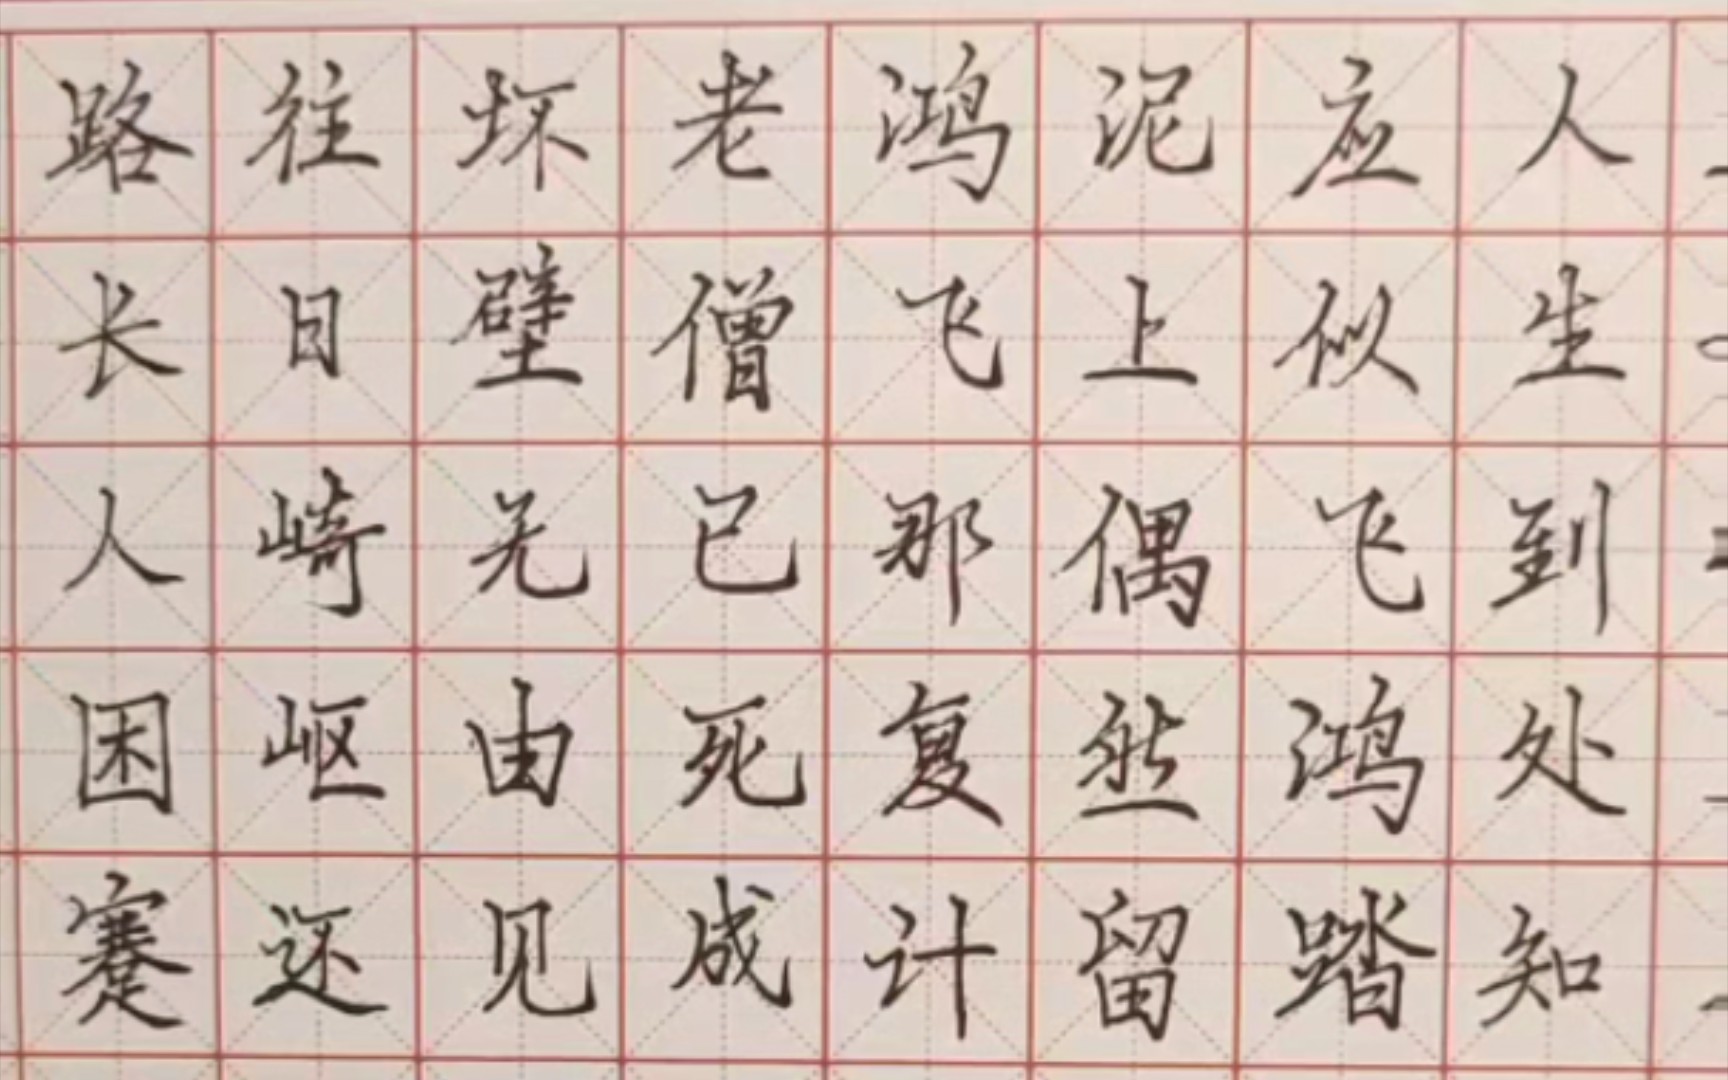 人生到处知
应似飞鸿踏
泥上偶然留
鸿飞那复计
老僧已死成
坏壁无由见
往日崎岖还
路长人困蹇